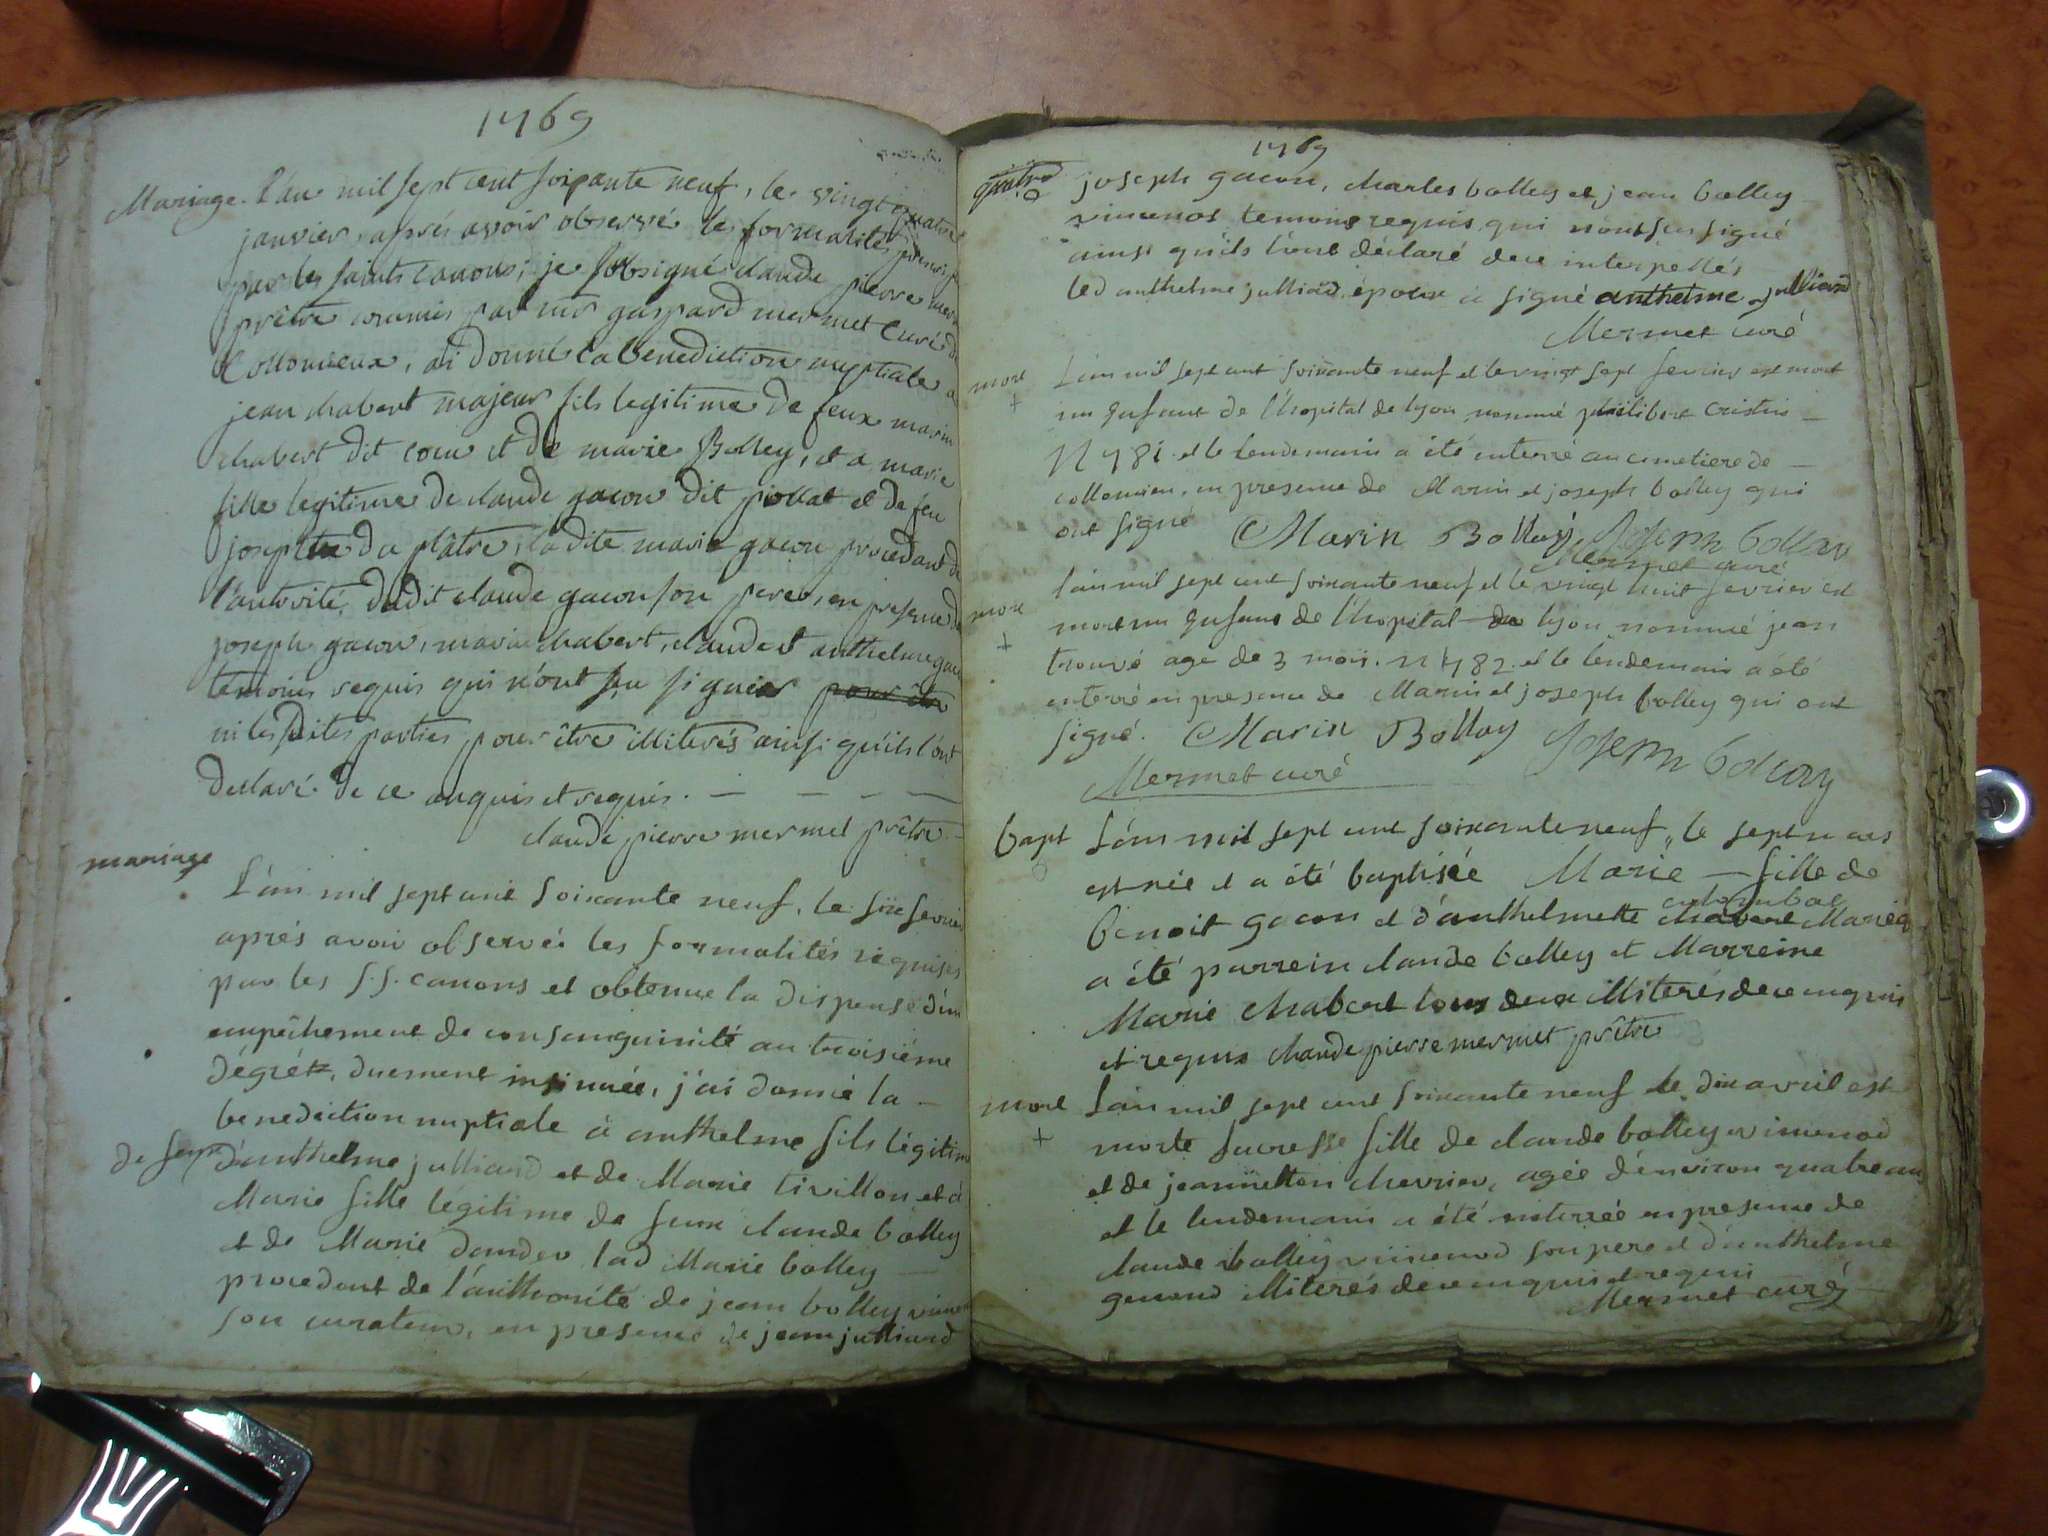 1769
Mariage. L'an mil sept cent soixante neuf, le vingt quatre
janvier, aprés avoir observé les formalités
par les saints canons; je sobsigné claude pierre
prêtre commis par mr gaspard mermet Curé de
Collomieux, ai donné la benediction nuptiale a
jean chabert majeur fils legitime de feux marin
chabert dit et de marie Bolley, et a marie
fille legitime de claude gacon dit pollat et de feu
josephte du plâtre, la dite marie gacon procedant de
l'autorité, dudit claude gacon son pere, en presence de
joseph gacon, marin chabert, claude et anthelme
témoins requis qui n'ont su signer pour être
ni les dites parties pour être illiterés ainsi qu'ils l'ont
declaré de ce enquis et requis. — — — —
claude pierre mermet prêtre
mariage
L'an mil sept cent soixante neuf, le six fevrier
aprés avoir observé les formalités requises
par les s.s. canons et obtenue la dispense d'un
empêchement de consanguinité au troisiéme
dégrét, duement insinuée, j'ai donné la —
benediction nuptiale à anthelme fils légitime
de feux d'anthelme julliard et de Marie tivillon et à
Marie fille légitime de feux claude bolley
et de Marie lad Marie bolley —
procedant de l'authorité de jean bolley
son curateur, en presence de jean julliard
1769
quatre
joseph gacon, charles bolley et jean bolley
vimenos temoins requis qui n'ont su signé
ainsi qu'ils l'ont déclaré de ce interpellés
led anthelme julliard époux a signé anthelme julliard
Mermet curé
mort L'an mil sept cent soixante neuf et le vingt sept fevrier est mort
+ un enfant de l'hopital de lyon nommé philibert cristin —
N 781 et le lendemain a été enterré au cimetiere de —
collomieu, en presence de Marin et joseph bolley qui
ont signé Marin Bolley Joseph bolley
Mermet curé
mort L'an mil sept cent soixante neuf et le vingt huit fevrier est
+ mort un enfant de l'hopital de lyon nommé jean
trouvé age de 3 mois. N 782. et le lendemain a été
enterré en presence de Marin et joseph bolley qui ont
signé. Marin Bolley Joseph bolley
Mermet curé
bapt L'an mil sept cent soixante neuf, le sept mars
est née et a été baptisée Marie — fille de
benoit gacon et d'anthelmette chabert Mariés
a été parrein claude bolley et Marreine
Marie chabert tous deux illiterés de ce enquis
et requis claude pierre mermet prêtre
mort L'an mil sept cent soixante neuf le dix avril est
+ morte fille de claude bolley vimenod
et de jeannetton chevrier, agée d'environ quatre ans
et le lendemain a été enterrée en presence de
claude bolley vimenod son pere et d'anthelme
illiterés de ce enquis et requis
Mermet curé